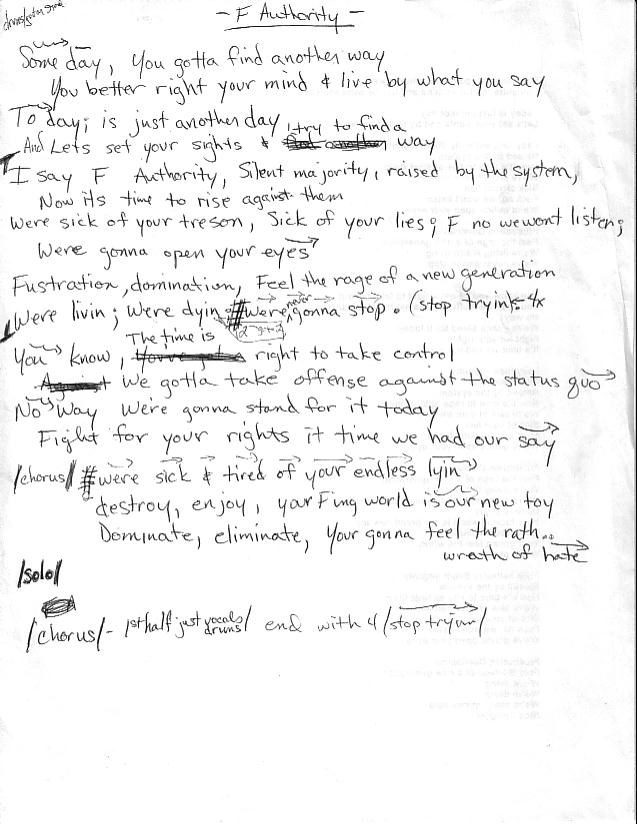 - F Authority -
Some day, You gotta find another way
You better right your mind & live by what you say
To day; is just another day, try to find a
And Lets set your sights & way
I say F Authority, Silent majority, raised by the system,
Now its time to rise against them
Were sick of your treson, Sick of your lies; F no we wont listen;
Were gonna open your eyes
Fustration, domination, Feel the rage of a new generation
Were livin; Were dyin; #were never gonna stop. (stop tryin) 4x
You know, The time is right to take control
We gotta take offense against the status quo
No Way We're gonna stand for it today
Fight for your rights it time we had our say
/chorus/ #were sick & tired of your endless lyin
destroy, enjoy, your Fing world is our new toy
Dominate, eliminate, Your gonna feel the rath..
wrath of hate
/solo/
/chorus/- 1st half just vocals drums/ end with 4 /stop tryin/